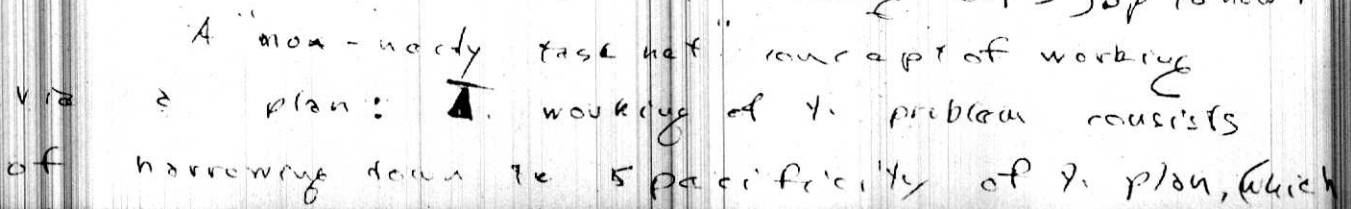 A "non-nerdy task net" concept of working
via a plan: I. working of y. problem consists
of narrowing down te specificity of y. plan, which